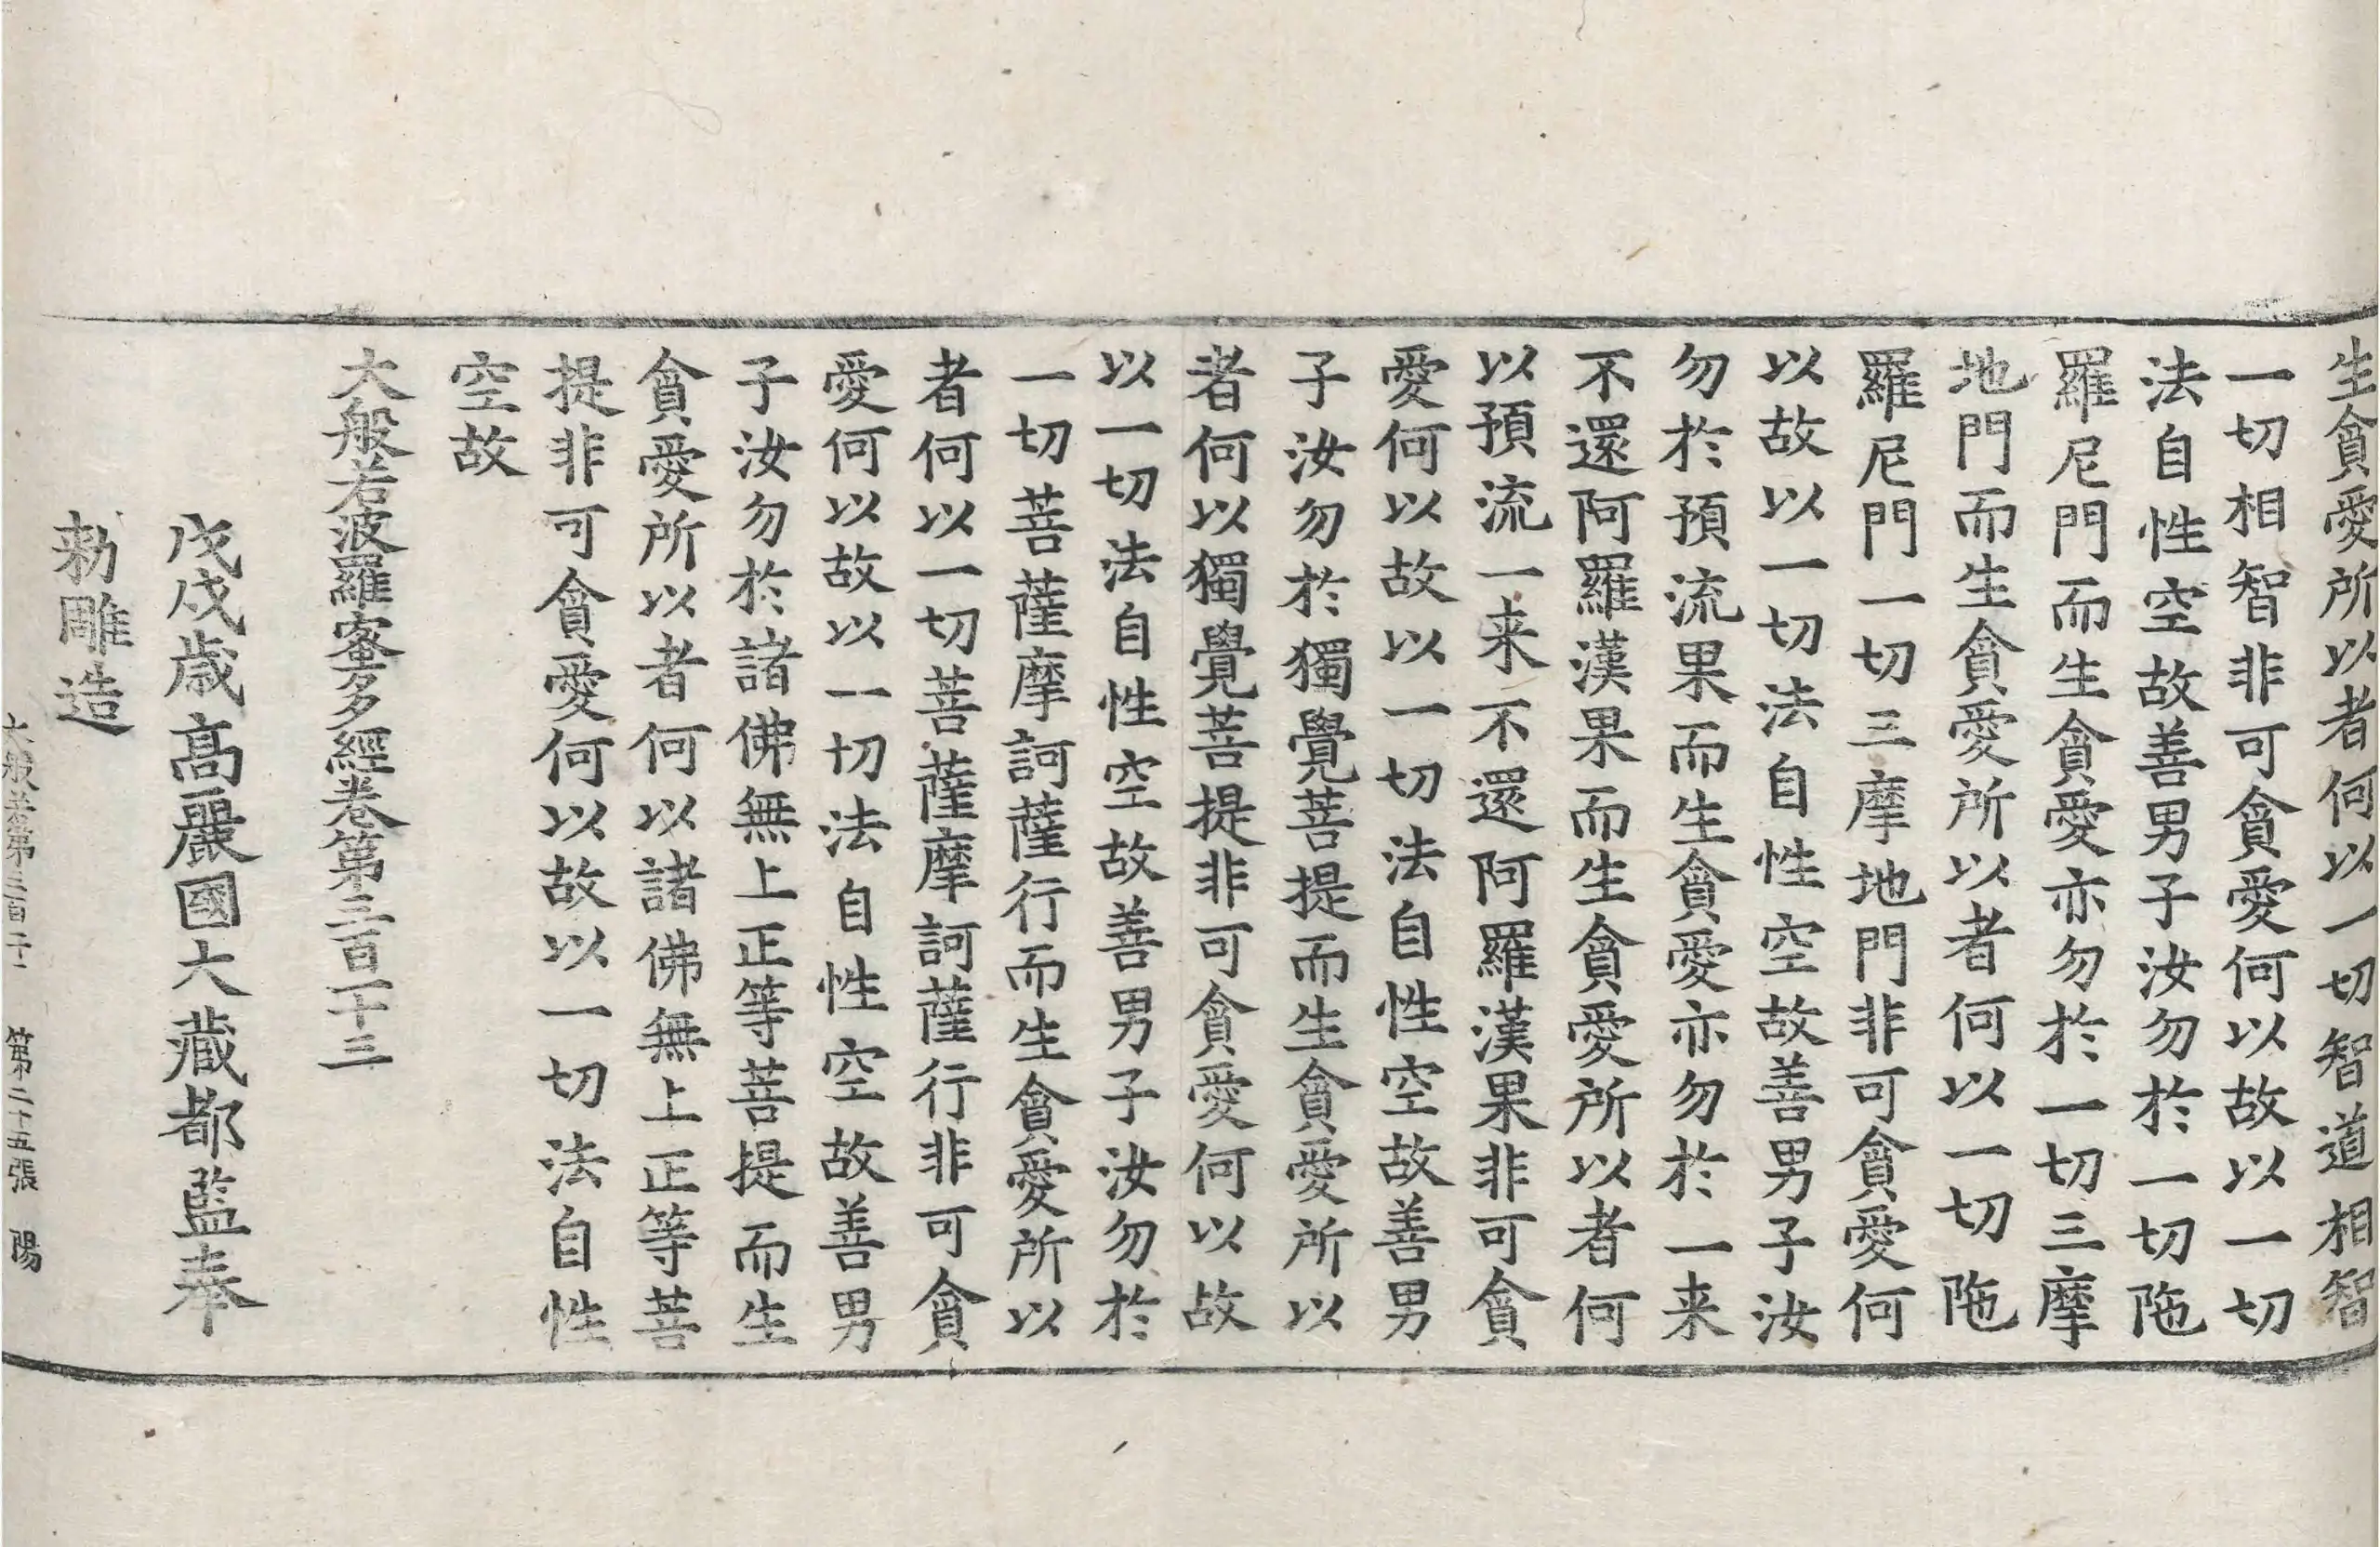 生貪愛所以者何以一切智道相智
一切相智非可貪愛何以故以一切
法自性空故善男子汝勿於一切陁
羅尼門而生貪愛亦勿於一切三摩
地門而生貪愛所以者何以一切陁
羅尼門一切三摩地門非可貪愛何
以故以一切法自性空故善男子汝
勿於預流果而生貪愛亦勿於一来
不還阿羅漢果而生貪愛所以者何
以預流一来不還阿羅漢果非可貪
愛何以故以一切法自性空故善男
子汝勿於獨覺菩提而生貪愛所以
者何以獨覺菩提非可貪愛何以故
以一切法自性空故善男子汝勿於
一切菩薩摩訶薩行而生貪愛所以
者何以一切菩薩摩訶薩行非可貪
愛何以故以一切法自性空故善男
子汝勿於諸佛無上正等菩提而生
貪愛所以者何以諸佛無上正等菩
提非可貪愛何以故以一切法自性
空故
大般若波羅蜜多經卷第三百一十三
戊戌歲高麗國大藏都監奉
勑雕造
第二十五張 陽